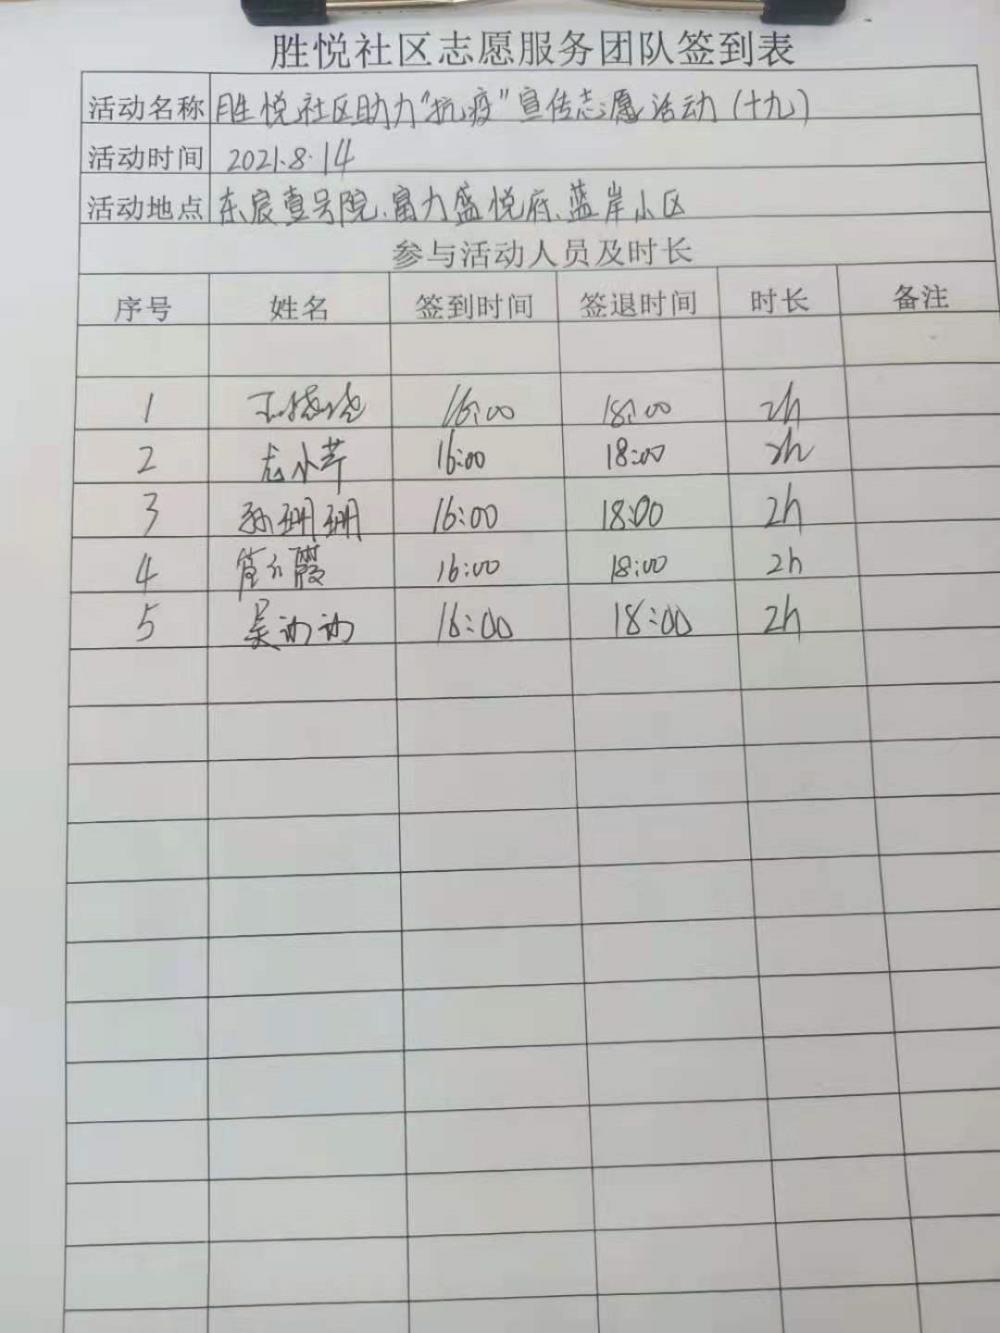 胜悦社区志愿服务团队签到表
活动名称 胜悦社区助力"抗疫"宣传志愿活动(十九)
活动时间 2021.8.14
活动地点 东宸壹号院、富力盛悦府、蓝岸小区
参与活动人员及时长
序号 姓名 签到时间 签退时间 时长 备注
1 王晓晓 16:00 18:00 2h
2 尤小芹 16:00 18:00 2h
3 孙珊珊 16:00 18:00 2h
4 霞 16:00 18:00 2h
5 吴 16:00 18:00 2h